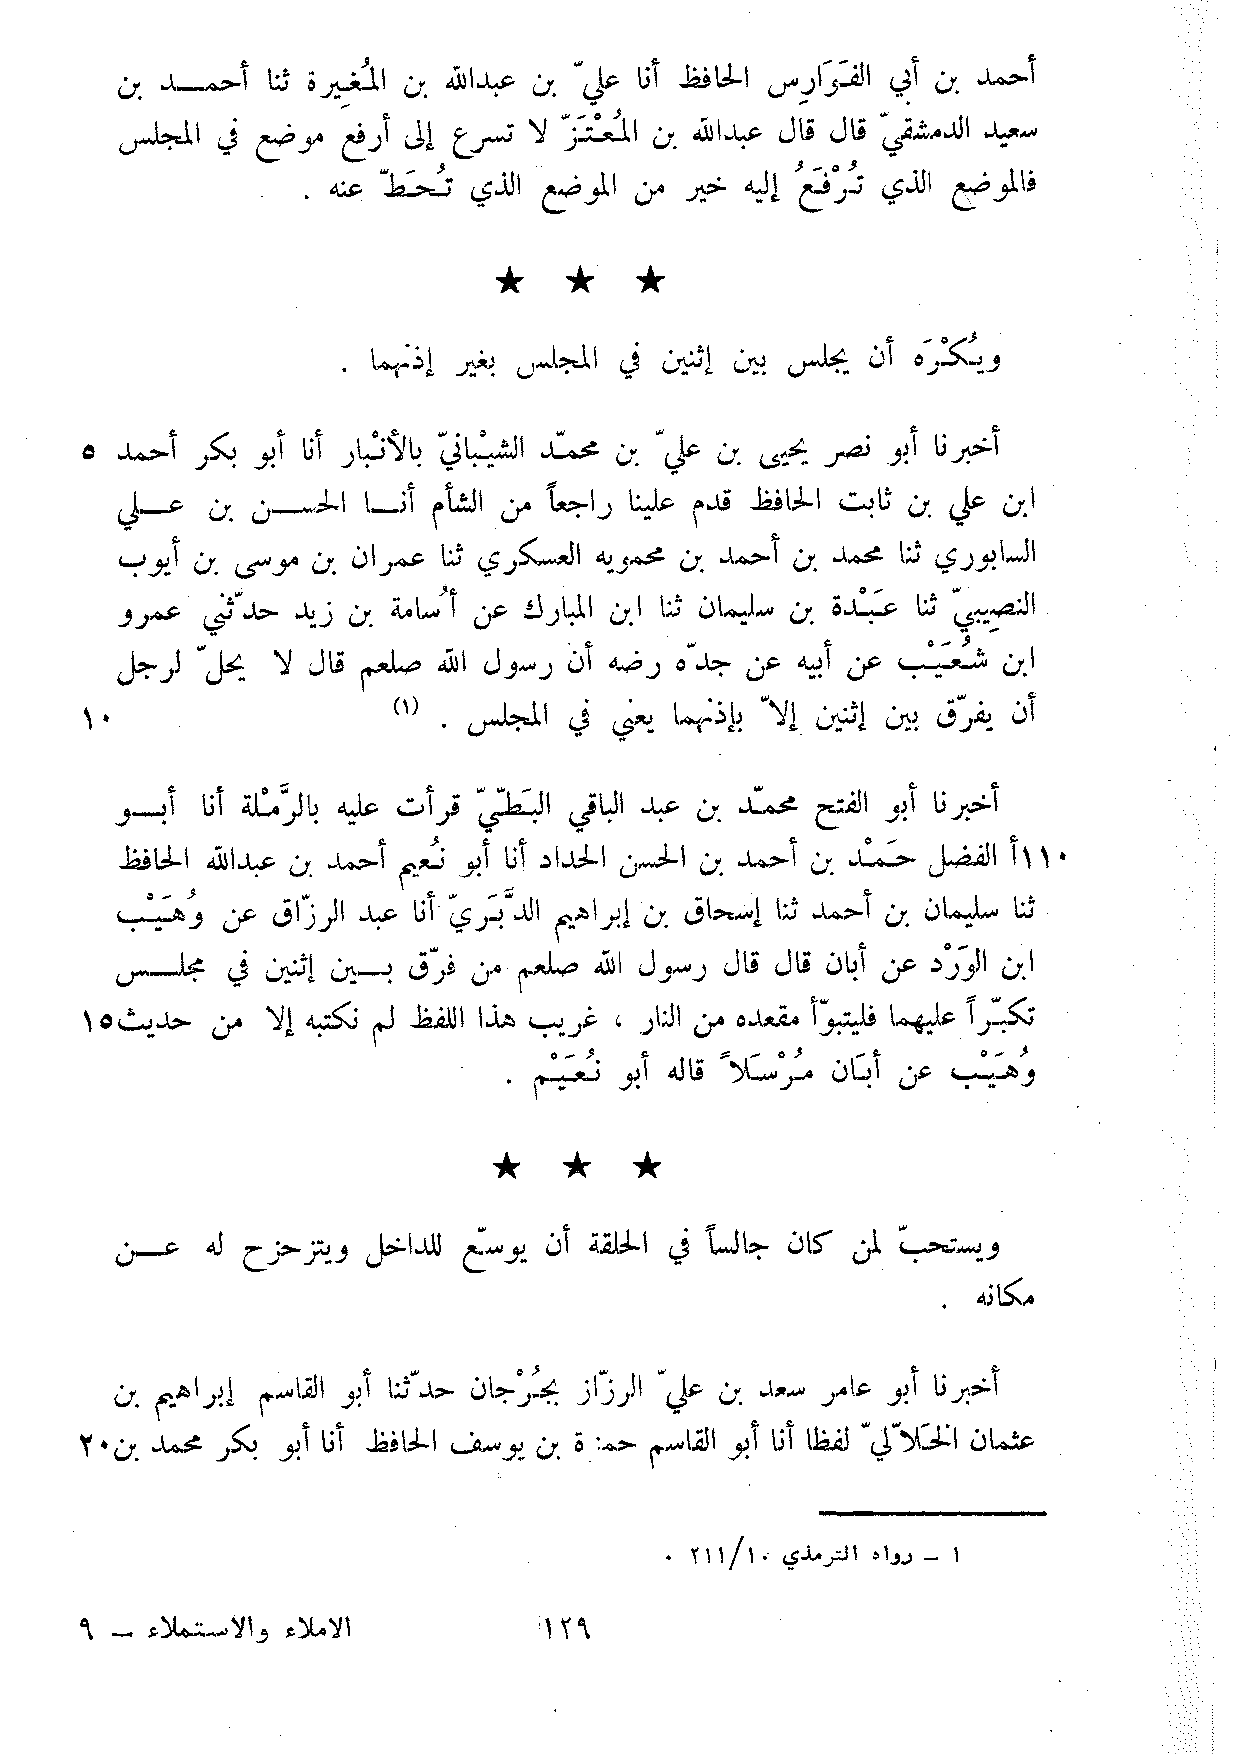 أحمد بن أبي الفَوَارِس الحافظ أنا عليّ بن عبدالله بن المُغِيرة ثنا أحمد بن
سعيد الدمشقيّ قال قال عبدالله بن المُعْتَزّ لا تسرع إلى أرفع موضع في المجلس
فالموضع الذي تُرْفَعُ إليه خير من الموضع الذي تُحَطّ عنه .
★ ★ ★
ويُكْرَه أن يجلس بين إثنين في المجلس بغير إذنهما .
أخبرنا أبو نصر يحيى بن عليّ بن محمّد الشيْبانيّ بالأنْبار أنا أبو بكر أحمد ٥
ابن علي بن ثابت الحافظ قدم علينا راجعاً من الشأم أنا الحسن بن علي
السابوري ثنا محمد بن أحمد بن محمويه العسكري ثنا عمران بن موسى بن أيوب
النصِيبيّ ثنا عَبْدة بن سليمان ثنا ابن المبارك عن أُسامة بن زيد حدّثني عمرو
ابن شُعَيْب عن أبيه عن جدّه رضه أن رسول الله صلعم قال لا يحلّ لرجل
أن يفرّق بين إثنين إلاّ بإذنهما يعني في المجلس . (١) ١٠
أخبرنا أبو الفتح محمّد بن عبد الباقي البَطّيّ قرأت عليه بالرَّمْلة أنا أبو
١١٠أ الفضل حَمْد بن أحمد بن الحسن الحداد أنا أبو نُعيم أحمد بن عبدالله الحافظ
ثنا سليمان بن أحمد ثنا إسحاق بن إبراهيم الدَّبَريّ أنا عبد الرزّاق عن وُهَيْب
ابن الوَرْد عن أبان قال قال رسول الله صلعم من فرّق بين إثنين في مجلس
تكبّراً عليهما فليتبوّأ مقعده من النار ، غريب هذا اللفظ لم نكتبه إلا من حديث ١٥
وُهَيْب عن أبَان مُرْسَلاً قاله أبو نُعَيْم .
★ ★ ★
ويستحبّ لمن كان جالساً في الحلقة أن يوسّع للداخل ويتزحزح له عن
مكانه .
أخبرنا أبو عامر سعد بن عليّ الرزّاز بجُرْجان حدّثنا أبو القاسم إبراهيم بن
عثمان الخَلاّليّ لفظا أنا أبو القاسم حم: ة بن يوسف الحافظ أنا أبو بكر محمد بن ٢٠
١ - رواه الترمذي ٢١١/١٠ .
١٢٩ الاملاء والاستملاء - ٩